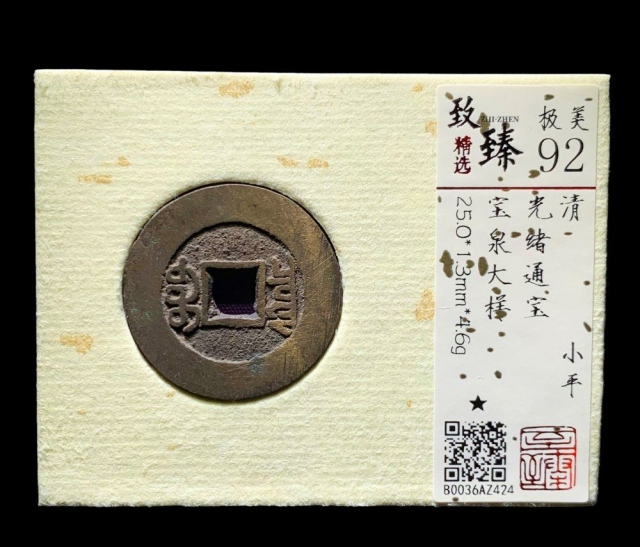 致臻
ZHI·ZHEN
精选
极美
92
清
光绪通宝
小平
宝泉大样
25.0*1.3mm*4.6g
★
B0036AZ424